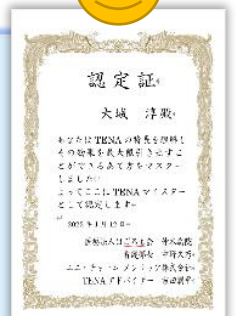 認定証
大城 淳殿
あなたは TENA の特長を理解し
その効果を最大限引き出すこ
とができるあて方をマスター
しました
よってここに TENA マイスター
として認定します
年1月12日
医療法人はごろも会 仲本病院
看護部長
ユニ・チャーム メンリッケ株式会社
TENA アドバイザー